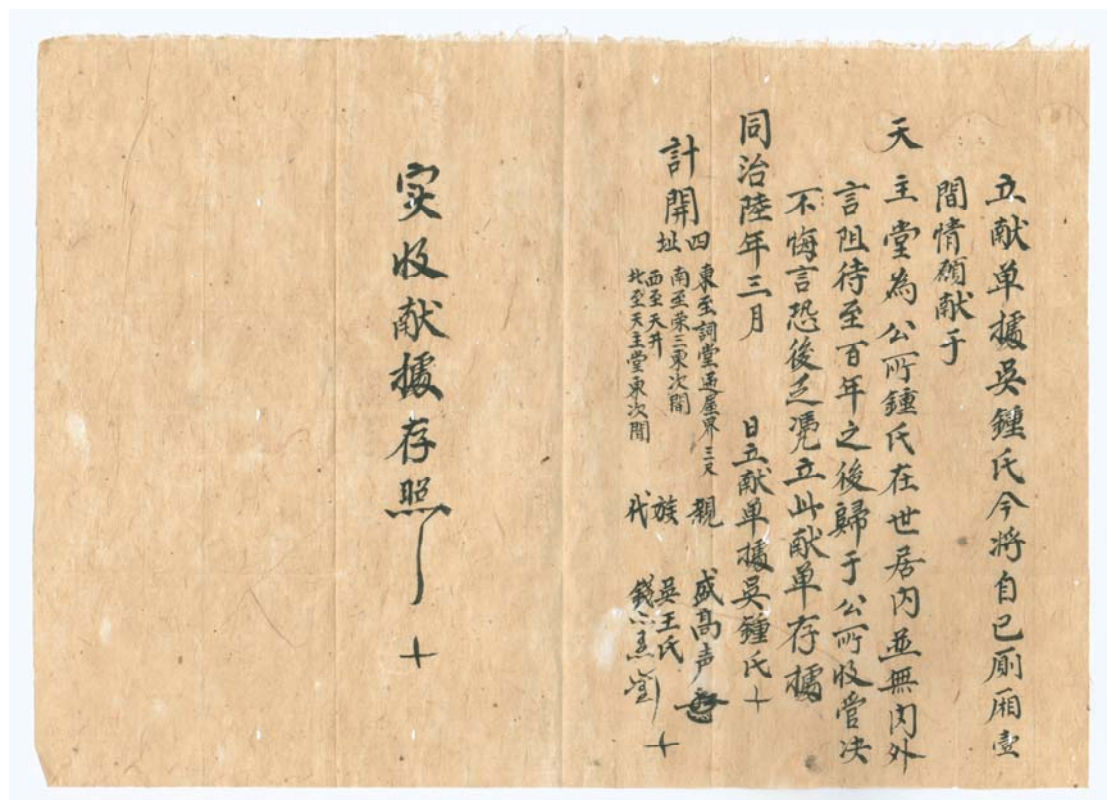 立献单據吳鍾氏今將自己廁廂壹
間情願献于
天主堂為公所鍾氏在世居内並無内外
言阻待至百年之後歸于公所收管决
不悔言恐後乏憑立此献单存據
同治陸年三月 日立献单據吳鍾氏十
計開四址
東至詞堂边屋界三尺
南至荣三東次間
西至天井
北至天主堂東次間
親 盛高声
族 吳王氏
代 錢 十
实收献據存照 十